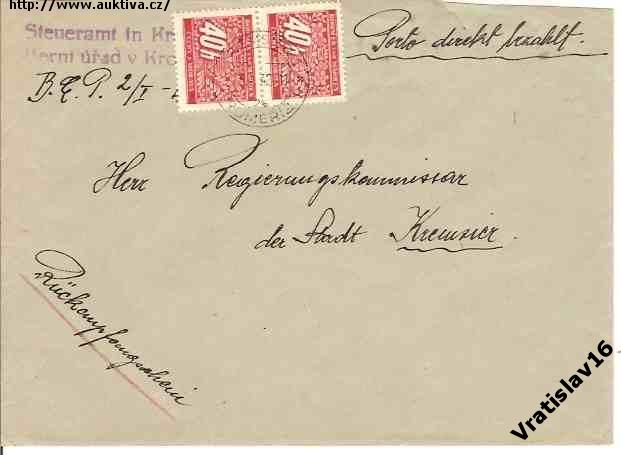 http://www.auktiva.cz/
Steueramt in Kr
Berní úřad v Kro
40h 40h
Porto direkt bezahlt.
B.E.P. 2/I -
Herr Regierungskommissar
der Stadt Kremsier.
Rückempfangschein
Vratislav16